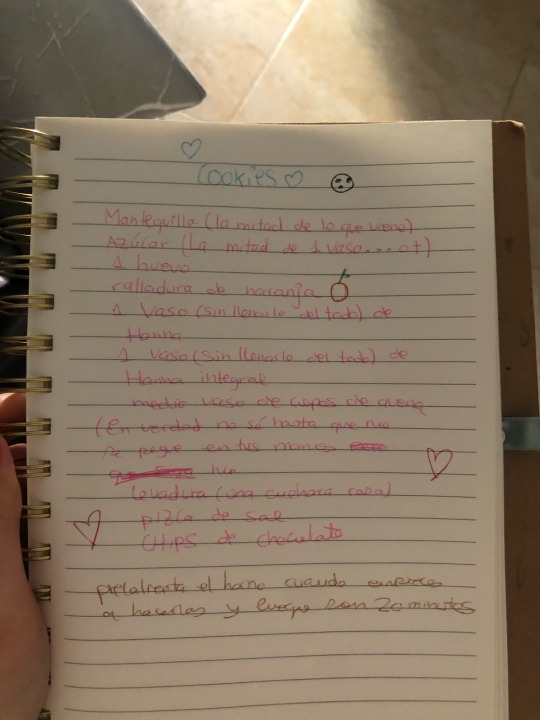 Cookies
Mantequilla (la mitad de lo que viene)
Azúcar (la mitad de 1 vaso... o+)
1 huevo
ralladura de naranja
1 Vaso (sin llenarlo del todo) de
Harina
1 vaso (sin llenarlo del todo) de
Harina integral
medio vaso de copos de avena
(En verdad no sé hasta que no
se pegue en tus manos
Levadura (una cuchara rasa)
pizca de sal
CHIPS de chocolate
precalienta el horno cuando empieces
a hacerlas y luego son 20 minutos